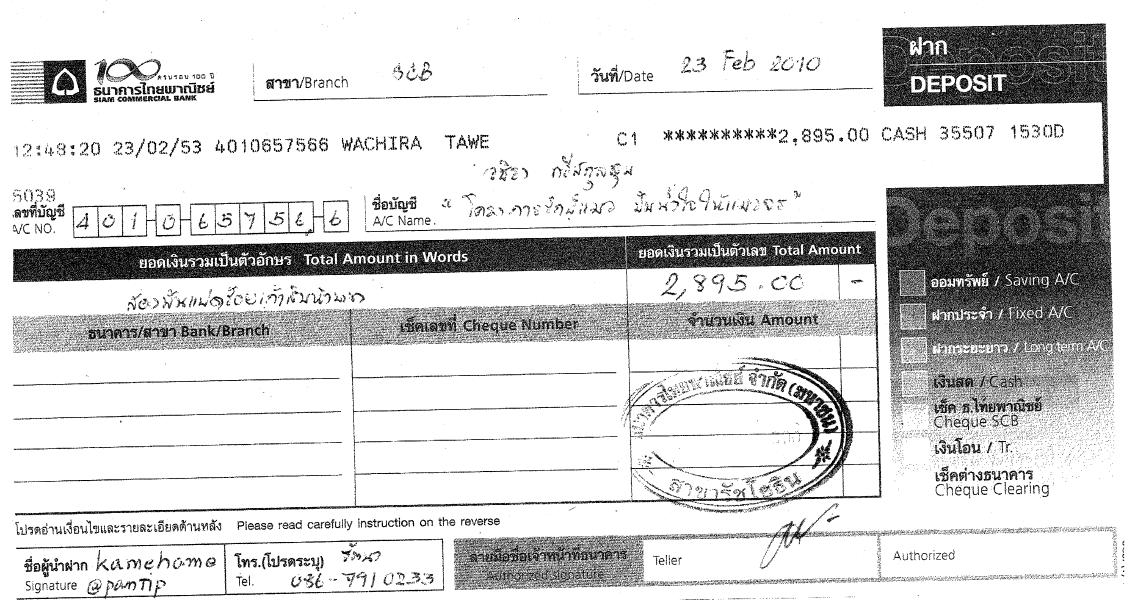 ฝาก
Deposit
DEPOSIT
100 ครบรอบ 100 ปี
ธนาคารไทยพาณิชย์
SIAM COMMERCIAL BANK
สาขา/Branch SCB
วันที่/Date 23 Feb 2010
12:48:20 23/02/53 4010657566 WACHIRA TAWE C1 **********2,895.00 CASH 35507 1530D
วชิรา ทวีสกุลสุข
5039
เลขที่บัญชี
A/C NO. 401-0-65756-6
ชื่อบัญชี
A/C Name.
Deposit
ยอดเงินรวมเป็นตัวอักษร Total Amount in Words
ยอดเงินรวมเป็นตัวเลข Total Amount
สองพันแปดร้อยเก้าสิบห้าบาท
2,895.00 -
ธนาคาร/สาขา Bank/Branch
เช็คเลขที่ Cheque Number
จำนวนเงิน Amount
ออมทรัพย์ / Saving A/C
ฝากประจำ / Fixed A/C
ฝากระยะยาว / Long term A/C
เงินสด / Cash
เช็ค ธ.ไทยพาณิชย์
Cheque SCB
เงินโอน / Tr.
เช็คต่างธนาคาร
Cheque Clearing
ธนาคารไทยพาณิชย์ จำกัด (มหาชน)
สาขารัชโยธิน
โปรดอ่านเงื่อนไขและรายละเอียดด้านหลัง Please read carefully instruction on the reverse
ชื่อผู้นำฝาก kamehame
Signature @pantip
โทร.(โปรดระบุ) รัตนา
Tel. 086-7910233
ลายมือชื่อเจ้าหน้าที่ธนาคาร
Authorized signature
Teller
Authorized